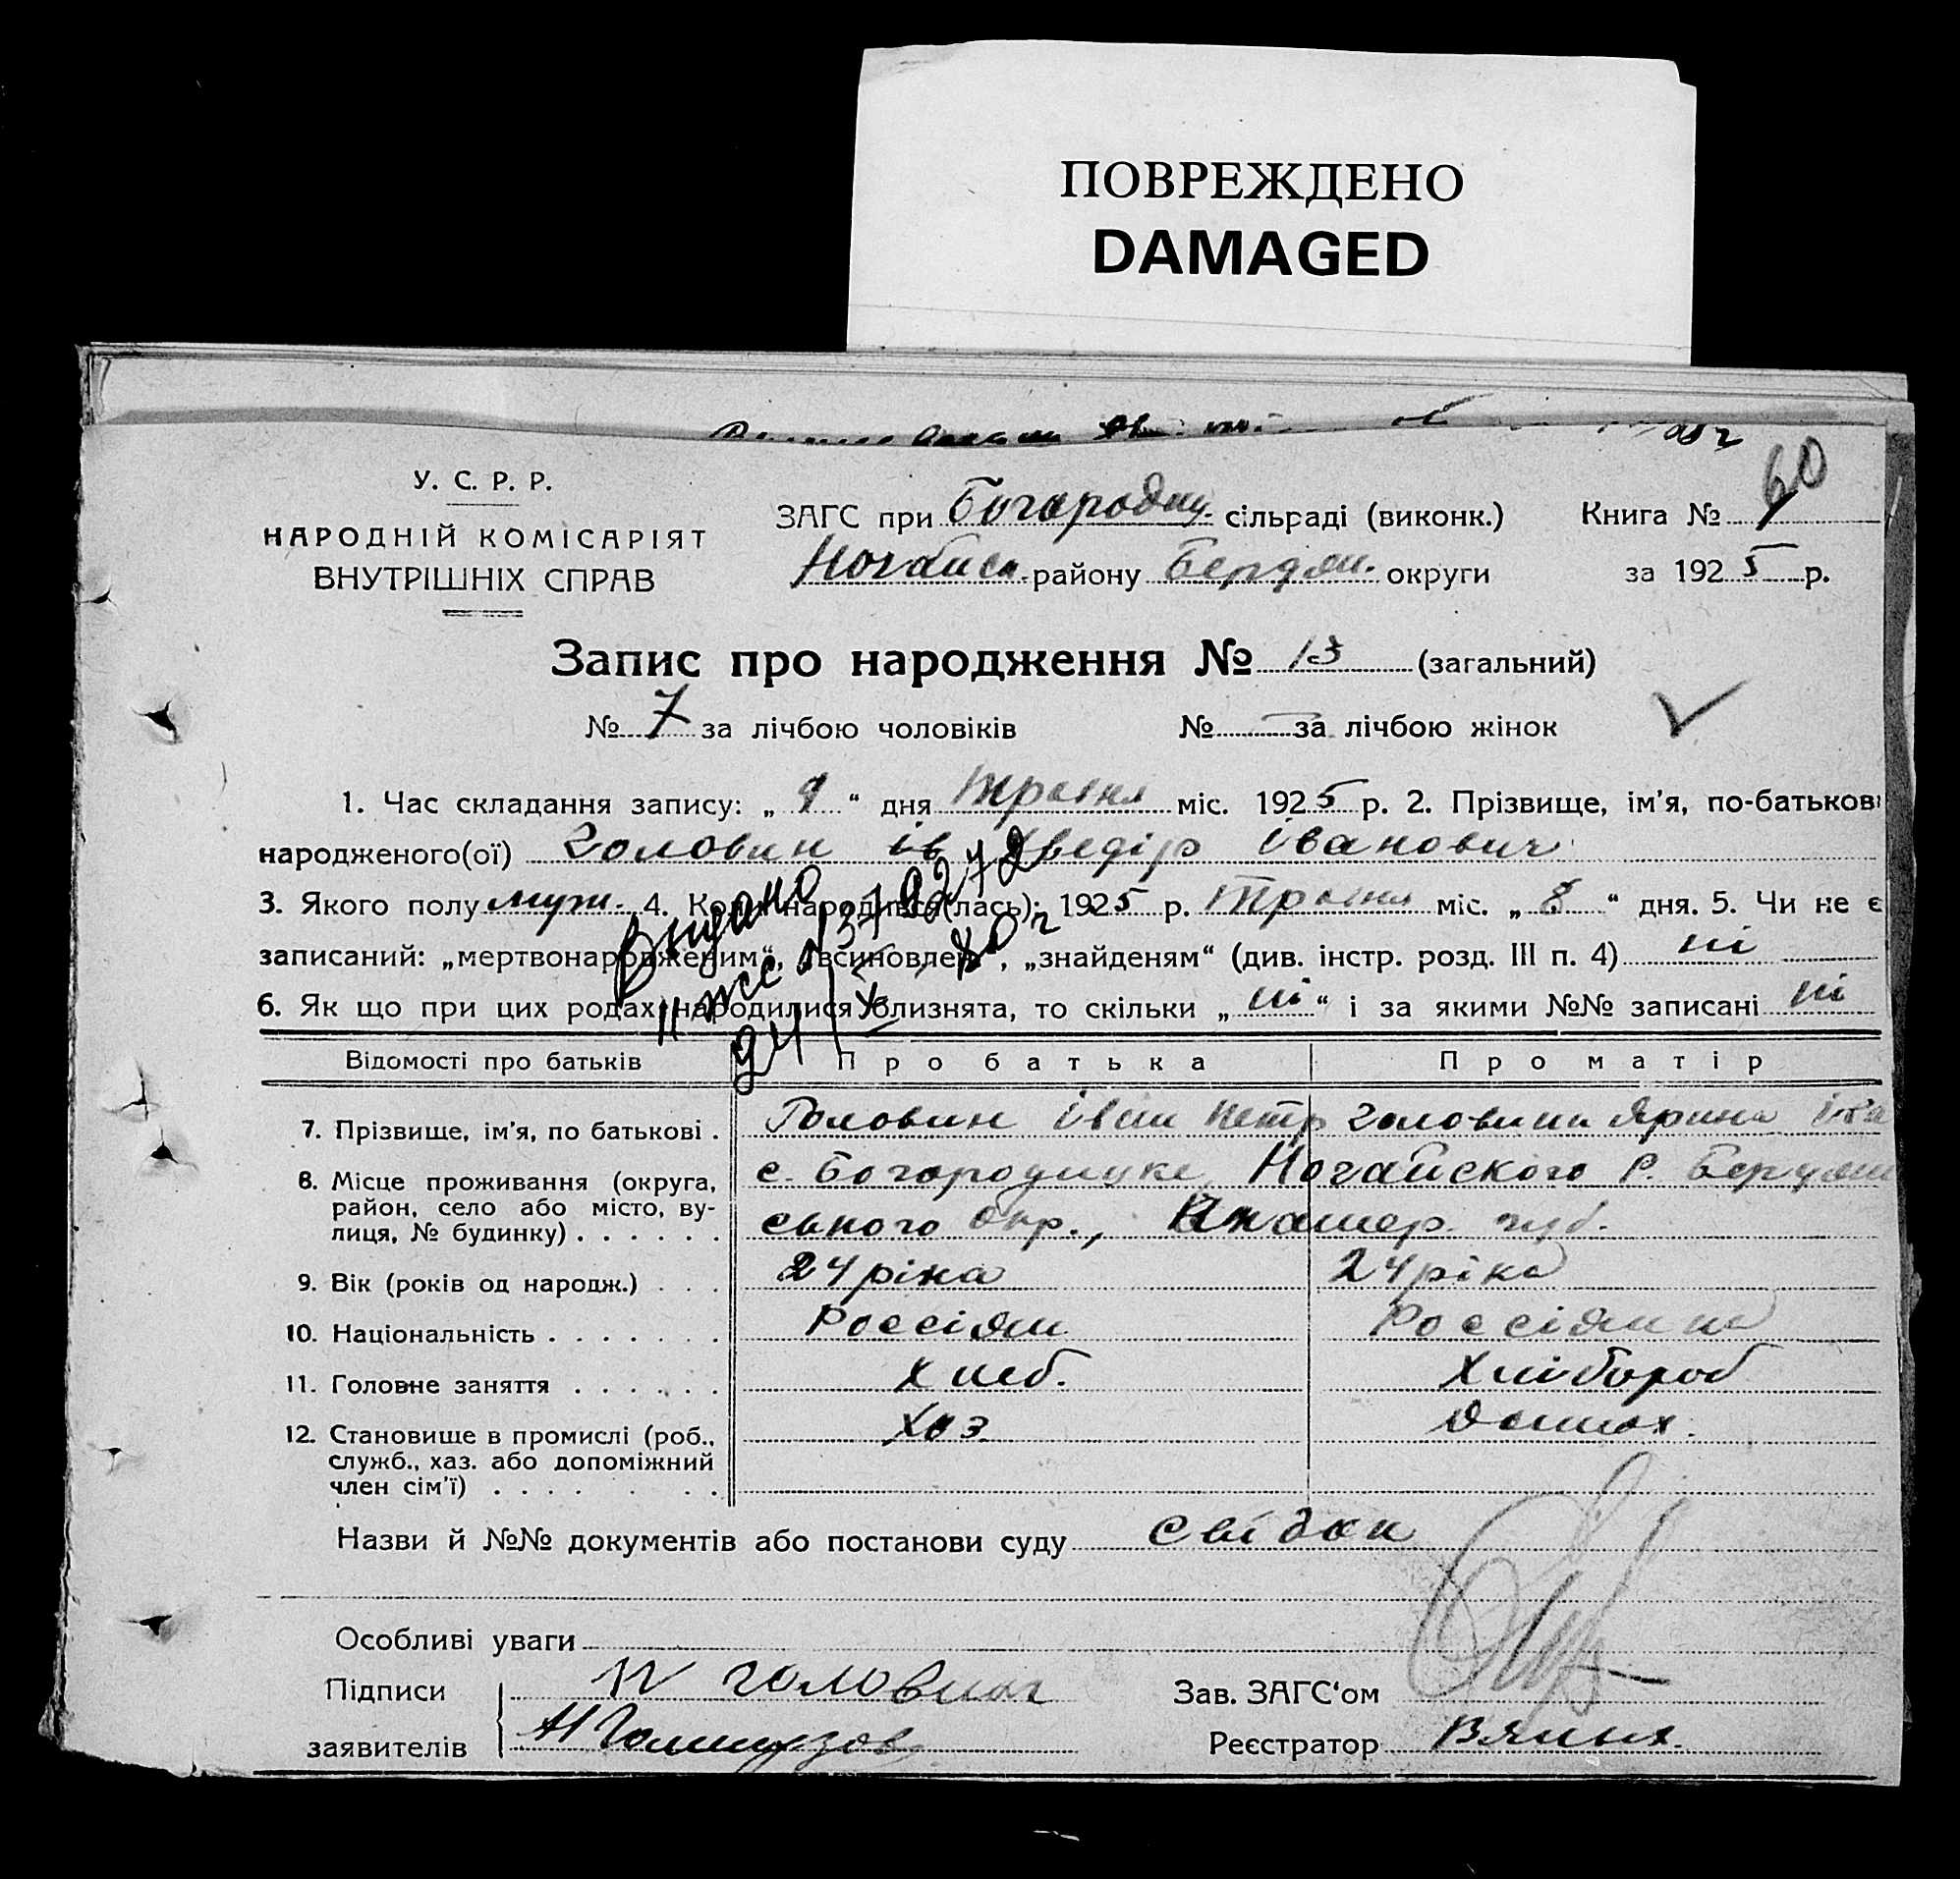 ПОВРЕЖДЕНО
DAMAGED
60
У. С. Р. Р.
НАРОДНІЙ КОМІСАРІЯТ
ВНУТРІШНІХ СПРАВ
ЗАГС при Богородиц. сільраді (виконк.) Книга №
Ногайск. району Бердян. округи за 1925 р.
Запис про народження № 13 (загальний)
№ 7 за лічбою чоловіків № — за лічбою жінок
1. Час складання запису: „ 9 “ дня Травня міс. 1925 р. 2. Прізвище, ім'я, по-батькові
народженого(ої) Головин Хведір Іванович
3. Якого полу муж. 4. Коли народився(лась): 1925 р. Травня міс. „ 8 “ дня. 5. Чи не є
записаний: „мертвонародженим“, „всиновлен“, „знайденям“ (див. інстр. розд. III п. 4) ні
6. Як що при цих родах народилися близнята, то скільки „ ні “ і за якими №№ записані ні
Видано
Відомості про батьків Про батька Про матір
7. Прізвище, ім'я, по батькові . Головин Іван Петр Головина Ярина Іва
8. Місце проживання (округа, с. Богородицке, Ногайского Р. Бердян
район, село або місто, ву-
лиця, № будинку) . . . . . . ського окр., губ.
9. Вік (років од народж.) . . . 24 ріка 24 ріка
10. Національність . . . . . . . Россіян Россіянка
11. Головне заняття . . . . . . Хліб. Хлібороб
12. Становище в промислі (роб., Хоз
служб., хаз. або допоміжний
член сім'ї) . . . . . . .
Назви й №№ документів або постанови суду Свідок
Особливі уваги
Підписи Головин Зав. ЗАГС‘ом
заявителів Реєстратор